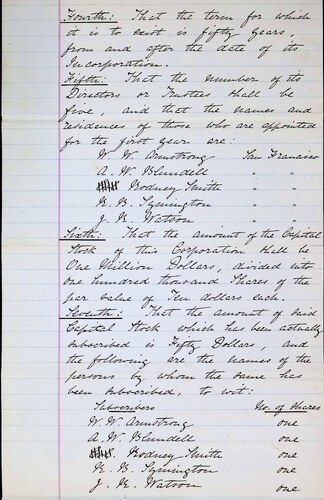 Fourth: That the term for which
it is to exist is fifty years,
from and after the date of its
Incorporation.
Fifth: That the number of its
Directors or Trustees shall be
five, and that the names and
residences of those who are appointed
for the first year are:
W. W. Armstrong San Francisco
A. W. Blundell " "
Rodney Smith " "
R. B. Symington " "
J. E. Watson " "
Sixth: That the amount of the Capital
Stock of this Corporation shall be
One Million Dollars, divided into
one hundred thousand shares of the
par value of Ten dollars each.
Seventh: That the amount of said
Capital Stock which has been actually
subscribed is Fifty Dollars, and
the following are the names of the
persons by whom the same has
been subscribed, to wit:
Subscribers No. of shares
W. W. Armstrong one
A. W. Blundell one
Rodney Smith one
R. B. Symington one
J. E. Watson one